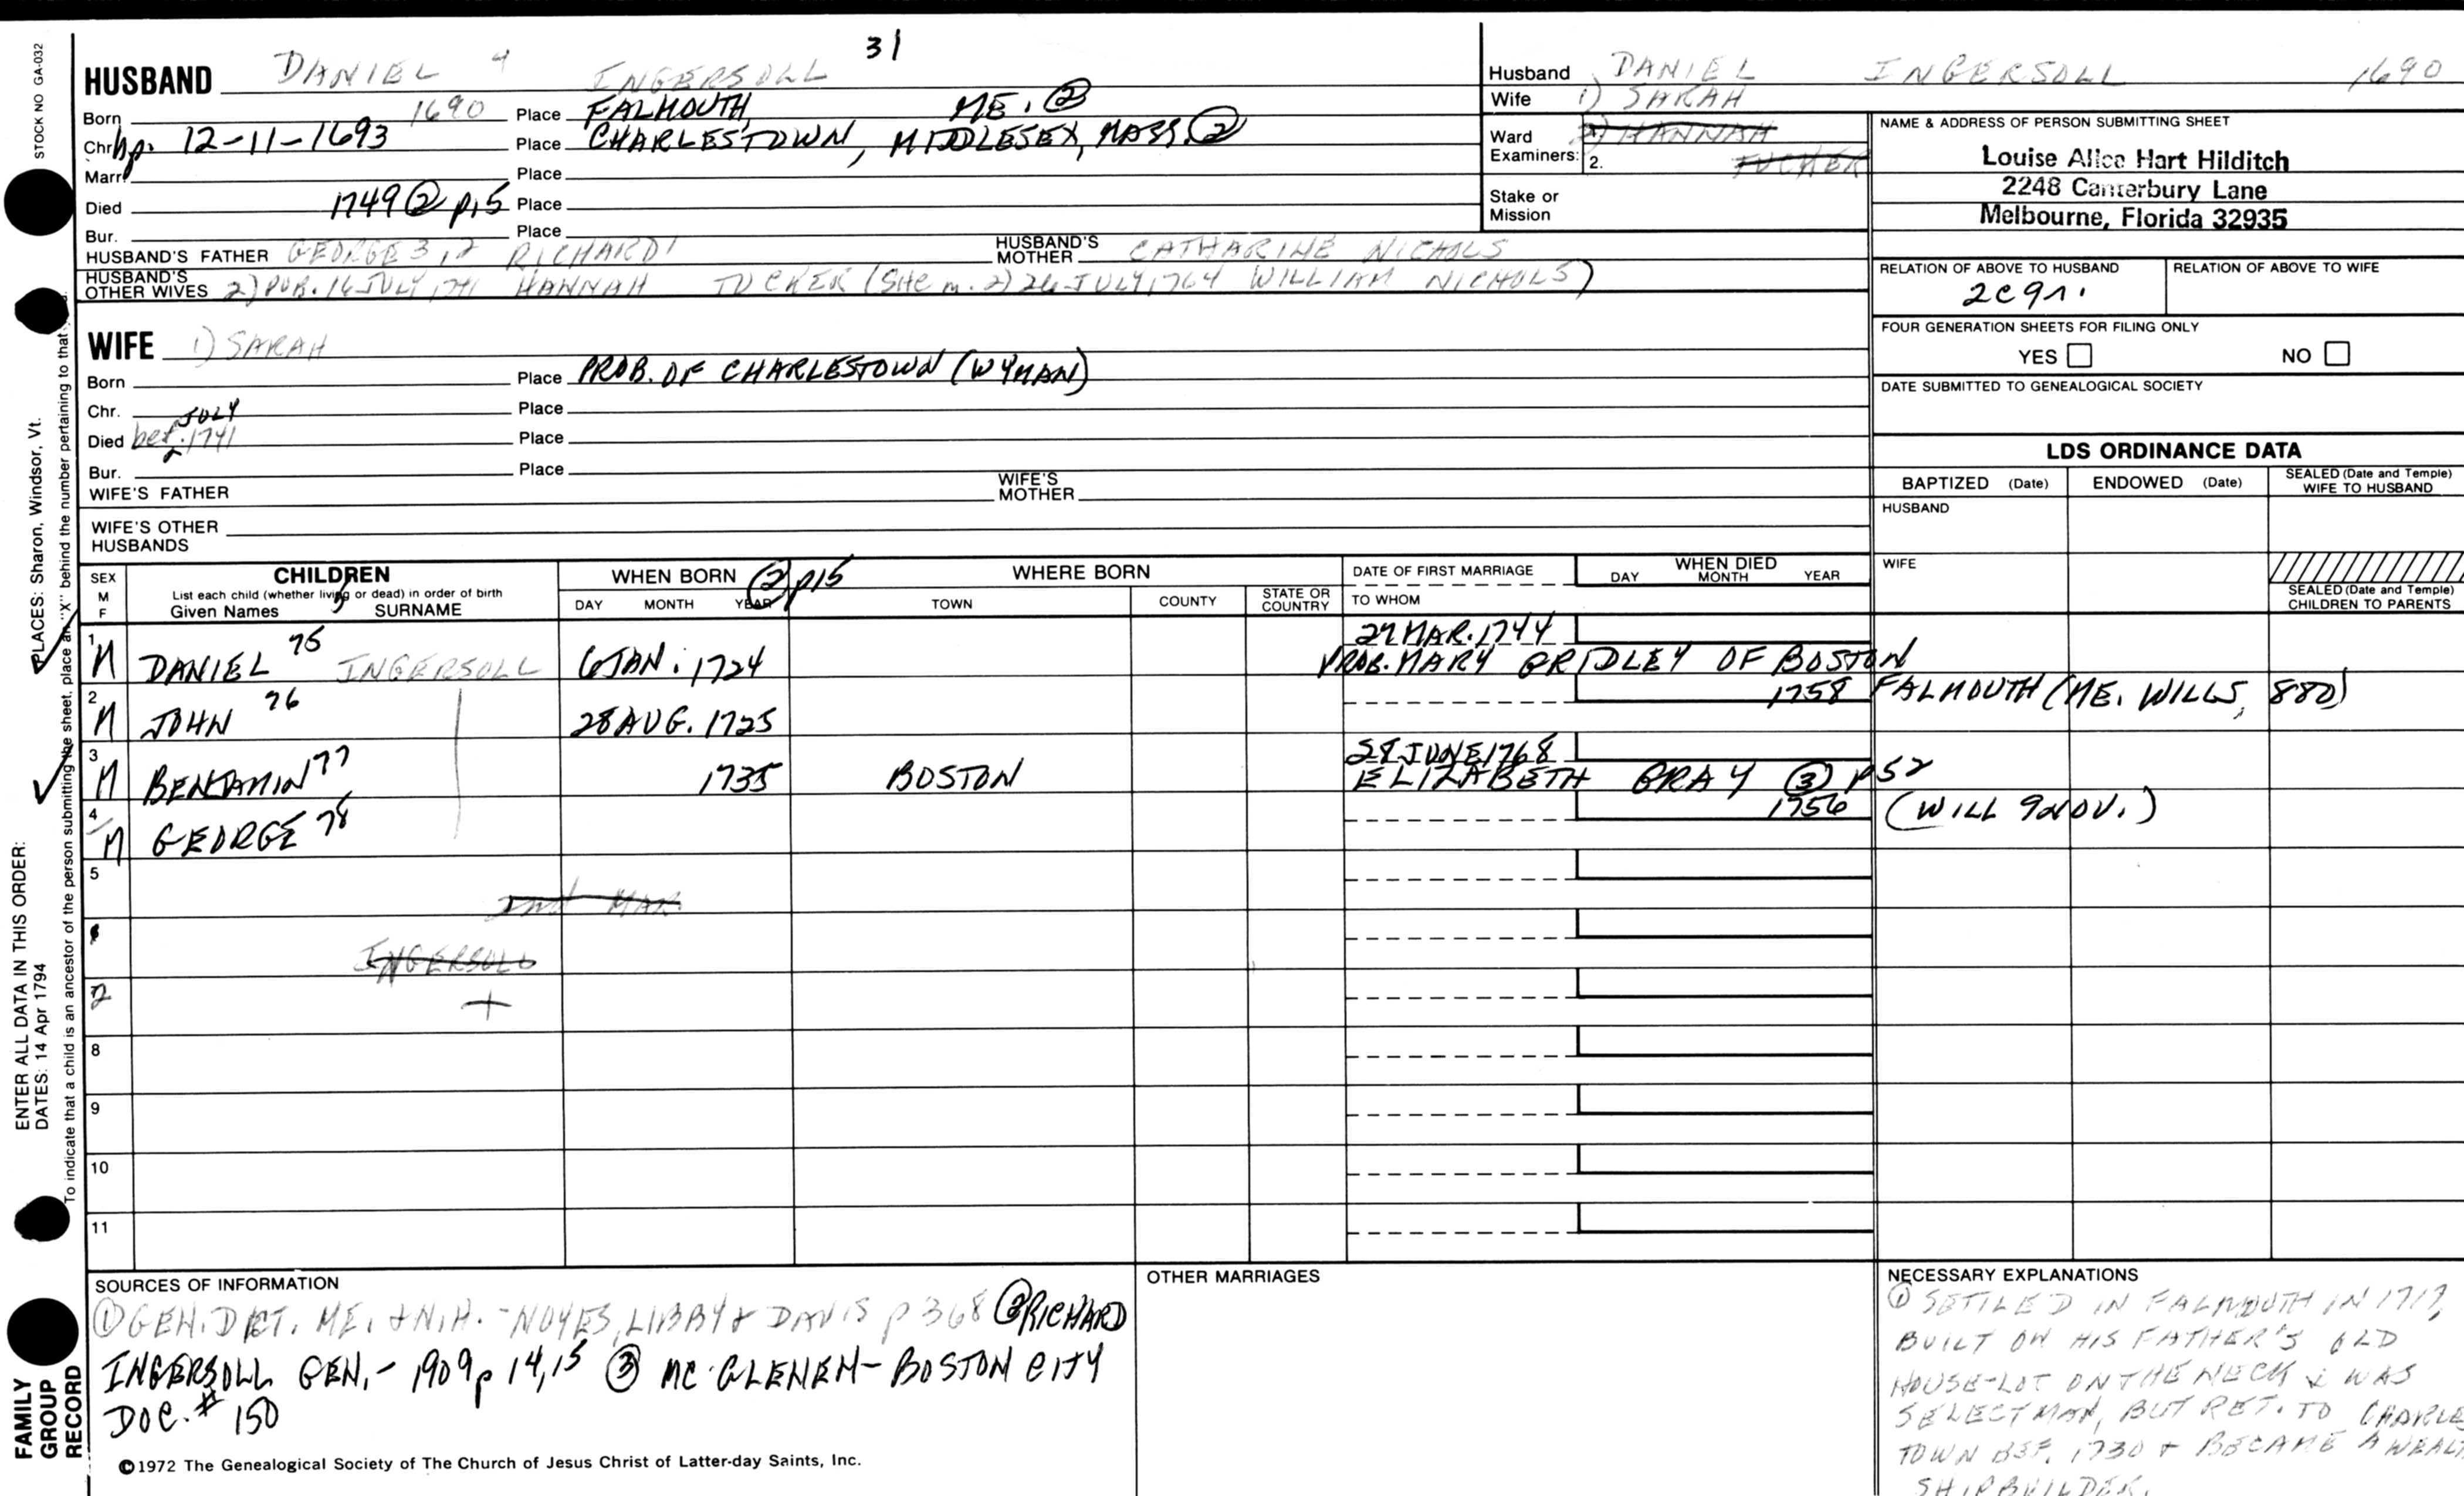 31
STOCK NO GA-032
HUSBAND DANIEL 4 INGERSOLL
Born 1690 Place FALMOUTH, ME. ②
Chr bp. 12-11-1693 Place CHARLESTOWN, MIDDLESEX, MASS ②
Marr. Place
Died 1749 ② p15 Place
Bur. Place
HUSBAND'S FATHER GEORGE 3, 2 RICHARD 1 HUSBAND'S MOTHER CATHARINE NICHOLS
HUSBAND'S OTHER WIVES 2) PUB. 16 JULY 1741 HANNAH TUCKER (SHE m. 2) 26 JULY 1764 WILLIAM NICHOLS)
WIFE 1) SARAH
Born Place PROB. OF CHARLESTOWN (WYMAN)
Chr. Place
Died bef. JULY 1741 Place
2
Bur. Place
WIFE'S FATHER WIFE'S MOTHER
WIFE'S OTHER HUSBANDS
Husband DANIEL INGERSOLL 1690
Wife 1) SARAH
Ward 2) HANNAH
Examiners: 2. TUCKER
Stake or Mission
NAME & ADDRESS OF PERSON SUBMITTING SHEET
Louise Alice Hart Hilditch
2248 Canterbury Lane
Melbourne, Florida 32935
RELATION OF ABOVE TO HUSBAND RELATION OF ABOVE TO WIFE
FOUR GENERATION SHEETS FOR FILING ONLY
YES NO
DATE SUBMITTED TO GENEALOGICAL SOCIETY
LDS ORDINANCE DATA
BAPTIZED (Date) ENDOWED (Date) SEALED (Date and Temple) WIFE TO HUSBAND
HUSBAND
WIFE
SEALED (Date and Temple) CHILDREN TO PARENTS
SEX M F
CHILDREN
List each child (whether living or dead) in order of birth
Given Names SURNAME
WHEN BORN ② p15
DAY MONTH YEAR
WHERE BORN
TOWN COUNTY STATE OR COUNTRY
DATE OF FIRST MARRIAGE
TO WHOM
WHEN DIED
DAY MONTH YEAR
1 M DANIEL 75 INGERSOLL 6 JAN. 1724 27 MAR. 1744
PROB. MARY GRIDLEY OF BOSTON
2 M JOHN 76 28 AUG. 1725 1758 FALMOUTH (ME. WILLS, 880)
3 M BENJAMIN 77 1735 BOSTON 28 JUNE 1768
ELIZABETH GRAY ③ p52
4 M GEORGE 78 1756 (WILL 9 NOV.)
5
MAR.
INGERSOLL
8
9
10
11
SOURCES OF INFORMATION
① GEN. DICT. ME. + N.H. - NOYES, LIBBY + DAVIS p 368 ② RICHARD
INGERSOLL GEN. - 1909 p 14,15 ③ MC GLENEN - BOSTON CITY
DOC. # 150
OTHER MARRIAGES
NECESSARY EXPLANATIONS
① SETTLED IN FALMOUTH IN 1717,
BUILT ON HIS FATHER'S OLD
HOUSE-LOT ON THE NECK & WAS
SELECTMAN, BUT RET. TO CHARLES
TOWN BEF. 1730 + BECAME A WEAL
SHIPBUILDER.
©1972 The Genealogical Society of The Church of Jesus Christ of Latter-day Saints, Inc.
ENTER ALL DATA IN THIS ORDER:
DATES: 14 Apr 1794
PLACES: Sharon, Windsor, Vt.
To indicate that a child is an ancestor of the person submitting the sheet, place an "X" behind the number pertaining to that
FAMILY
GROUP
RECORD